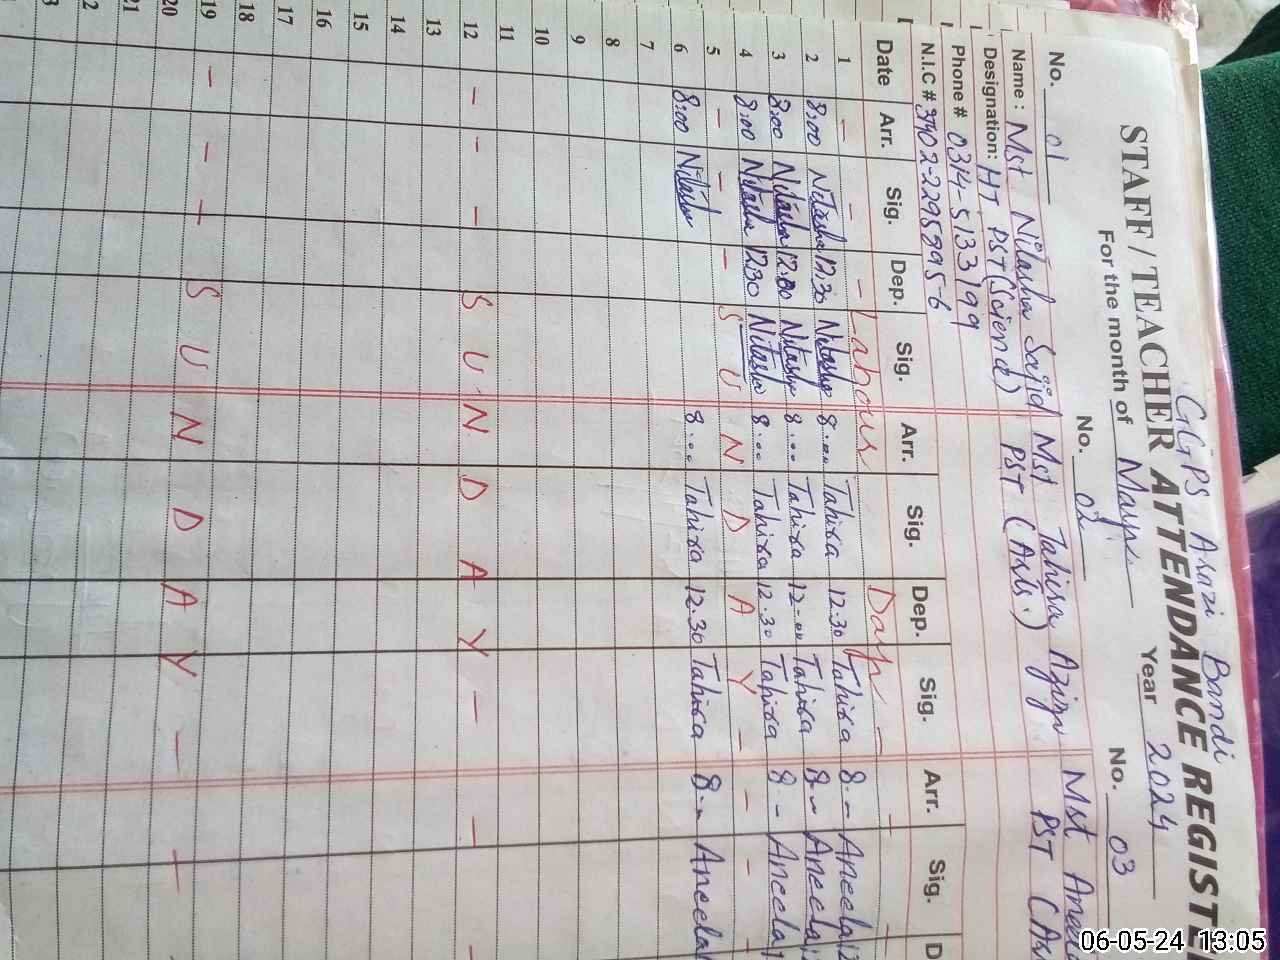 GGPS Arazi Bandi
STAFF / TEACHER ATTENDANCE REGISTE
For the month of Year 2024
No. 01 No. 02 No. 03
Name : Mst Nitasha Sajid Mst Tahira Mst
Designation: HT PST (Science) PST (Arts.) PST
Phone # 0314-5133199
N.I.C #
Date Arr. Sig. Dep. Sig. Arr. Sig. Dep. Sig. Arr. Sig. D
1 - - - Labour Day -
2 8:00 Nitasha 12.30 Nitasha 8:00 Tahira 12.30 Tahira 8-- Aneela
3 8:00 Nitasha 12:00 Nitasha 8:00 Tahira 12-00 Tahira 8-- Aneela
4 8:00 Nitasha 12:30 Nitasha 8:00 Tahira 12.30 Tahira 8-- Aneela
5 - - - SUNDAY - - -
6 8:00 Nitasha 8:00 Tahira 12.30 Tahira 8-- Aneela
7
8
9
10
11
12 - - - SUNDAY - -
13
14
15
16
17
18
19 - - - SUNDAY - -
20
21
2
3
06-05-24 13:05